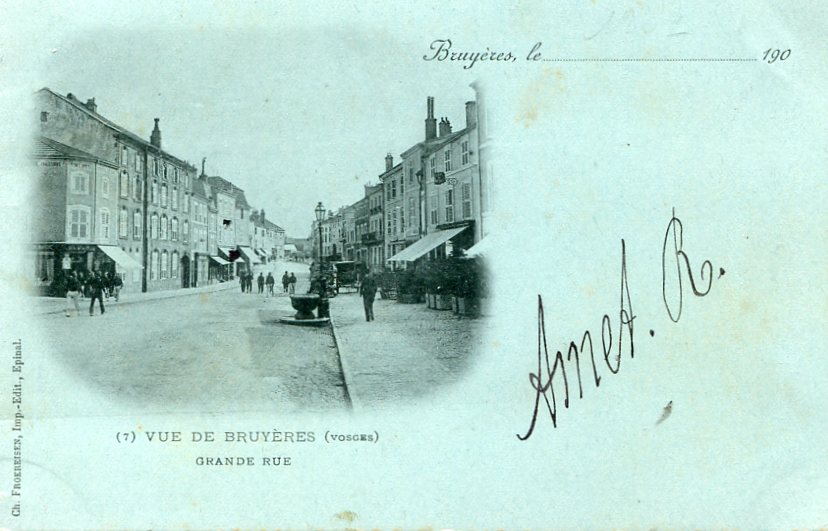 Bruyères, le 190
Amet. R.
(7) VUE DE BRUYÈRES (VOSGES)
GRANDE RUE
Ch. FROEREISEN, Imp.-Edit., Epinal.